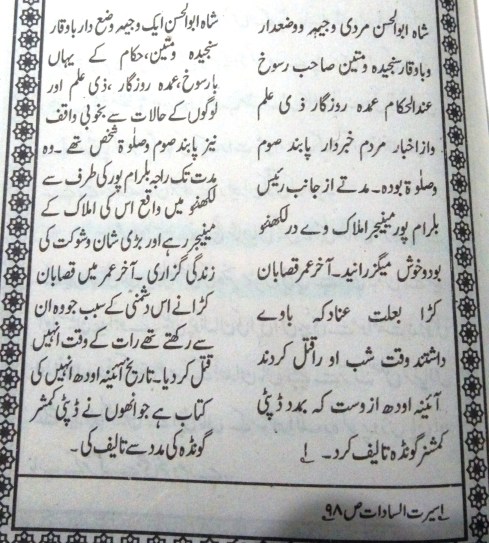 شاہ ابوالحسن مردی وجیہہ ووضعدار
وباوقار سنجیدہ ومتین صاحب رسوخ
عندالحکام عمدہ روزگار ذی علم
واز اخبار مردم خبردار پابند صوم
وصلوٰۃ بودہ۔ مدتے از جانب رئیس
بلرام پور مینیجر املاک وے در لکھنؤ
بود وخوش میگزرانید۔ آخر عمر قصابان
کڑا بعلت عناد کہ باوے
داشتند وقت شب او را قتل کردند
آئینہ اودھ از وست کہ بمدد ڈپٹی
کمشنر گونڈہ تالیف کرد۔ ۱
شاہ ابوالحسن ایک وجیہہ وضع دار باوقار
سنجیدہ ومتین، حکام کے یہاں
بارسوخ، عمدہ روزگار، ذی علم اور
لوگوں کے حالات سے بخوبی واقف
نیز پابند صوم وصلوٰۃ شخص تھے۔ وہ
مدت تک راجہ بلرام پور کی طرف سے
لکھنؤ میں واقع اس کی املاک کے
مینیجر رہے اور بڑی شان وشوکت کی
زندگی گزاری۔ آخر عمر میں قصابان
کڑا نے اس دشمنی کے سبب جو وہ ان
سے رکھتے تھے رات کے وقت انہیں
قتل کر دیا۔ تاریخ آئینہ اودھ انہیں کی
کتاب ہے جو انھوں نے ڈپٹی کمشنر
گونڈہ کی مدد سے تالیف کی۔
۱ سیرت السادات ص ۹۸